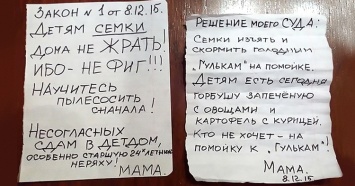 ЗАКОН №1 от 8.12.15.
ДЕТЯМ СЕМКИ
ДОМА НЕ ЖРАТЬ!
ИБО-НЕ ФИГ!!!
НАУЧИТЕСЬ
ПЫЛЕСОСИТЬ
СНАЧАЛА!
НЕСОГЛАСНЫХ
СДАМ В ДЕТДОМ,
ОСОБЕННО СТАРШУЮ 24х ЛЕТНЮЮ
НЕРЯХУ!
МАМА.
РЕШЕНИЕ МОЕГО СУДА:
СЕМКИ ИЗЪЯТЬ И
СКОРМИТЬ ГОЛОДНЫМ
"ГУЛЬКАМ" НА ПОМОЙКЕ.
ДЕТЯМ ЕСТЬ СЕГОДНЯ
ГОРБУШУ ЗАПЕЧЕНУЮ
С ОВОЩАМИ И
КАРТОФЕЛЬ С КУРИЦЕЙ.
КТО НЕ ХОЧЕТ - НА
ПОМОЙКУ К "ГУЛЬКАМ".
МАМА.
8.12.15